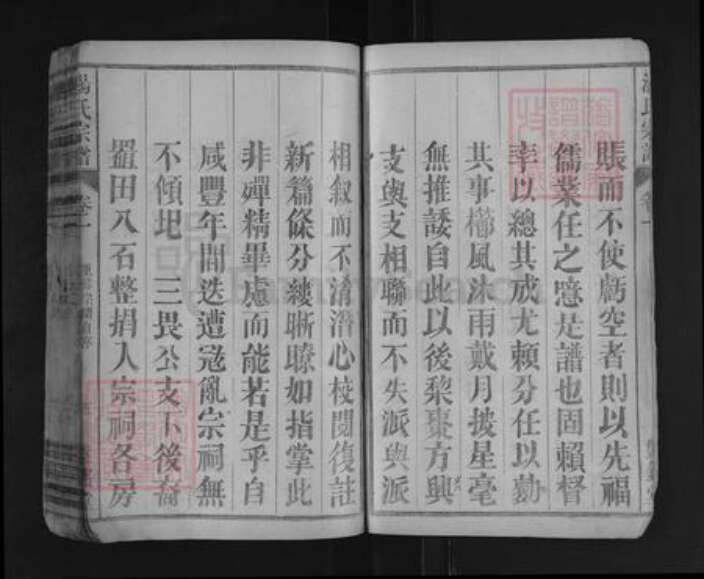 賬而不使虧空者則以先福
儒業任之噫是譜也固賴督
率以總其成尤賴分任以勷
其事櫛風沐雨戴月披星毫
無推諉自此以後棃棗方興
支與支相聯而不失派與派
相叙而不淆潛心校閱復註
新篇條分縷晰瞭如指掌此
非殫精畢慮而能若是乎自
咸豐年間迭遭冦亂宗祠無
不傾圯三畏公支下後裔
置田八石整捐入宗祠各房
氏宗譜 卷一